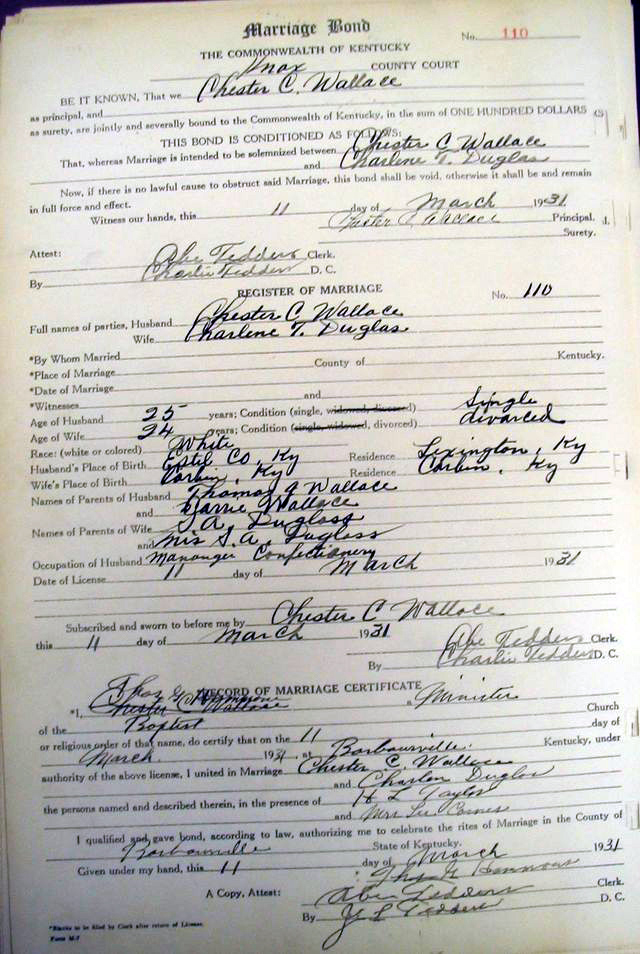 Marriage Bond
No. 110
THE COMMONWEALTH OF KENTUCKY
Knox COUNTY COURT
BE IT KNOWN, That we Chester C. Wallace
as principal, and
as surety, are jointly and severally bound to the Commonwealth of Kentucky, in the sum of ONE HUNDRED DOLLARS
THIS BOND IS CONDITIONED AS FOLLOWS:
That, whereas Marriage is intended to be solemnized between Chester C Wallace
and Charlene T. Duglas
Now, if there is no lawful cause to obstruct said Marriage, this bond shall be void, otherwise it shall be and remain
in full force and effect.
Witness our hands, this 11 day of March 1931
Chester C Wallace Principal.
Surety.
Attest: Abe Tedders Clerk.
By Charlie Tedders D. C.
REGISTER OF MARRIAGE
No. 110
Full names of parties, Husband Chester C. Wallace
Wife Charlene T. Duglas
*By Whom Married
*Place of Marriage County of Kentucky.
*Date of Marriage
*Witnesses and
Age of Husband 25 years; Condition (single, widowed, divorced) Single
Age of Wife 24 years; Condition (single, widowed, divorced) divorced
Race: (white or colored) White
Husband's Place of Birth Estil Co, Ky Residence Lexington, Ky
Wife's Place of Birth Corbin, Ky Residence Corbin, Ky
Names of Parents of Husband Thomas J Wallace
and Carrie Wallace
Names of Parents of Wife S. A. Duglass
and Mrs S. A. Duglass
Occupation of Husband Mananger Confectionery
Date of License 11 day of March 1931
Subscribed and sworn to before me by Chester C Wallace
this 11 day of March 1931
Abe Tedders Clerk.
By Charlie Tedders D. C.
RECORD OF MARRIAGE CERTIFICATE
*I, Chester C Wallace a Minister
of the Baptist Church
or religious order of that name, do certify that on the 11 day of
March 1931, at Barbourville Kentucky, under
authority of the above license, I united in Marriage Chester C. Wallace
and Charlen Duglas
the persons named and described therein, in the presence of H L Taylor
and Mrs Lee
I qualified and gave bond, according to law, authorizing me to celebrate the rites of Marriage in the County of
Barbourville State of Kentucky.
Given under my hand, this 11 day of March 1931
Thos G
A Copy, Attest: Abe Tedders Clerk.
By Y L Tedders D. C.
*Blanks to be filed by Clerk after return of License.
Form M-7